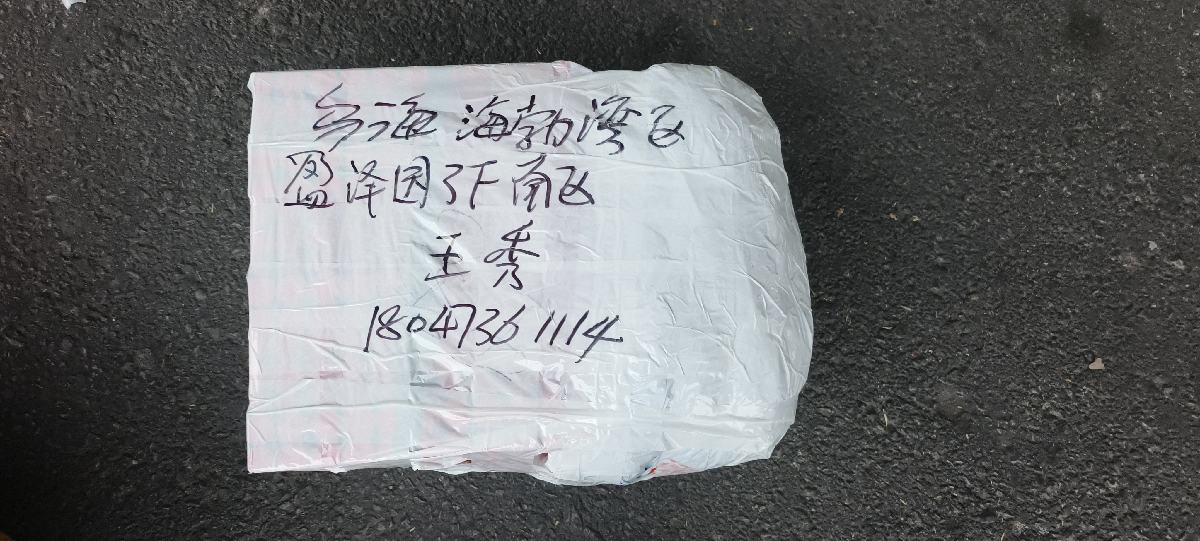 乌海 海勃湾区
盈泽因3F南区
王秀
18047361114